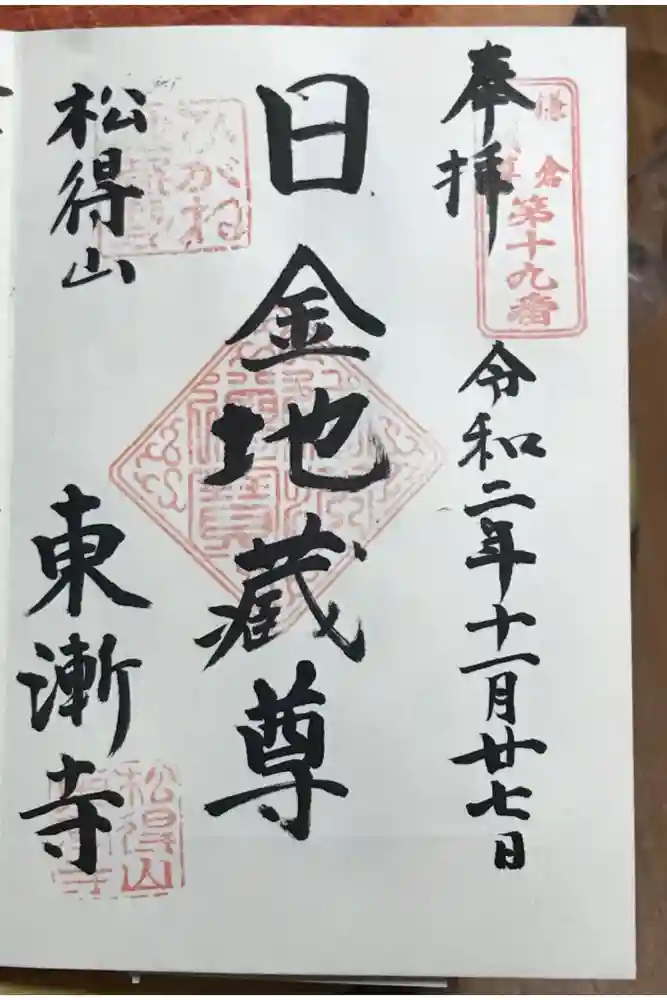 奉拝
鎌倉
第十九番
令和二年十一月廿七日
日金地蔵尊
松得山
ひがね
東漸寺
松得山